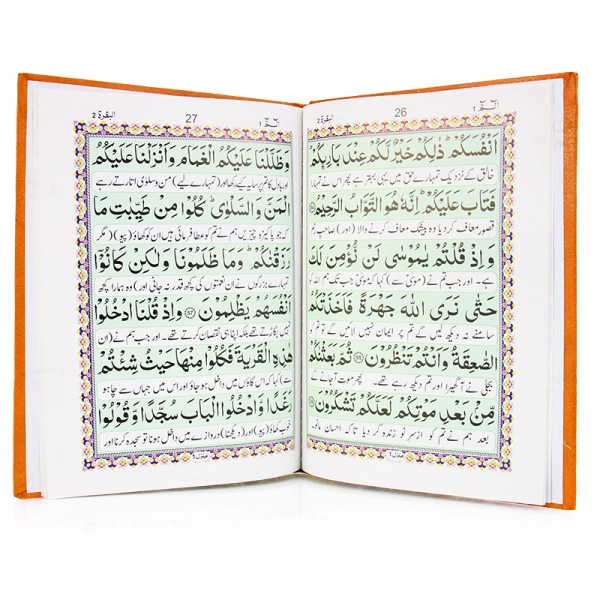 البقرة ٢
26
الٓمّٓ ١
اَنْفُسَكُمْ ذٰلِكُمْ خَيْرٌ لَّكُمْ عِنْدَ بَارِىِٕكُمْ
خالق کے نزدیک تمہارے حق میں یہی بہتر ہے پھر اس نے تمہارا
فَتَابَ عَلَيْكُمْ اِنَّهٗ هُوَ التَّوَّابُ الرَّحِيْمُ
قصور معاف کر دیا وہ بیشک معاف کرنے والا (اور) صاحب رحم
وَاِذْ قُلْتُمْ يٰمُوْسٰى لَنْ نُّؤْمِنَ لَكَ
ہے۔ اور جب تم نے (موسیٰ سے) کہا کہ موسیٰ جب تک ہم اللہ کو
حَتّٰى نَرَى اللّٰهَ جَهْرَةً فَاَخَذَتْكُمُ
سامنے نہ دیکھ لیں گے تم پر ایمان نہیں لائیں گے تو تم کو
الصّٰعِقَةُ وَاَنْتُمْ تَنْظُرُوْنَ ٥٥ ثُمَّ بَعَثْنٰكُمْ
بجلی نے آ گھیرا اور تم دیکھ رہے تھے۔ پھر موت آ جانے کے
مِّنْ بَعْدِ مَوْتِكُمْ لَعَلَّكُمْ تَشْكُرُوْنَ
بعد ہم نے تم کو از سر نو زندہ کر دیا تاکہ احسان مانو۔
منزل ١
البقرة ٢
27
الٓمّٓ ١
وَظَلَّلْنَا عَلَيْكُمُ الْغَمَامَ وَاَنْزَلْنَا عَلَيْكُمُ
اور بادل کا تم پر سایہ کئے رکھا اور (تمہارے لیے) من و سلویٰ اتارتے رہے
الْمَنَّ وَالسَّلْوٰى كُلُوْا مِنْ طَيِّبٰتِ مَا
کہ جو پاکیزہ چیزیں ہم نے تم کو عطا فرمائی ہیں ان کو کھاؤ (پیو) (مگر
رَزَقْنٰكُمْ وَمَا ظَلَمُوْنَا وَلٰكِنْ كَانُوْٓا
تمہارے بزرگوں نے ان نعمتوں کی کچھ قدر نہ جانی اور) وہ ہمارا کچھ
اَنْفُسَهُمْ يَظْلِمُوْنَ ٥٧ وَاِذْ قُلْنَا ادْخُلُوْا
نہیں بگاڑتے تھے بلکہ اپنا ہی نقصان کرتے تھے۔ اور جب ہم نے (ان
هٰذِهِ الْقَرْيَةَ فَكُلُوْا مِنْهَا حَيْثُ شِئْتُمْ
سے) کہا کہ اس گاؤں میں داخل ہو جاؤ اور اس میں جہاں سے چاہو
رَغَدًا وَّادْخُلُوا الْبَابَ سُجَّدًا وَّقُوْلُوْا
خوب کھاؤ (پیو) اور (دیکھنا) دروازے میں داخل ہونا تو سجدہ کرنا اور
منزل ١